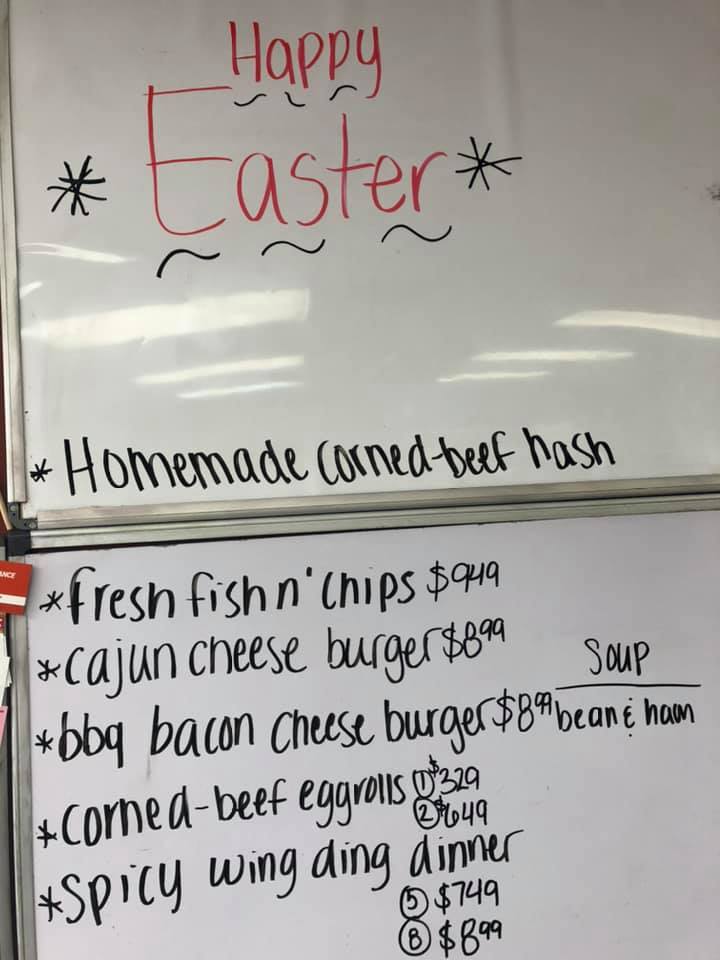 Happy
Easter
* Homemade corned-beef hash
*fresh fish n' chips $949
*cajun cheese burger $899
*bbq bacon cheese burger $899
Soup
bean & ham
*corned-beef eggrolls ① $329
② $649
*Spicy wing ding dinner
⑤ $749
⑧ $899